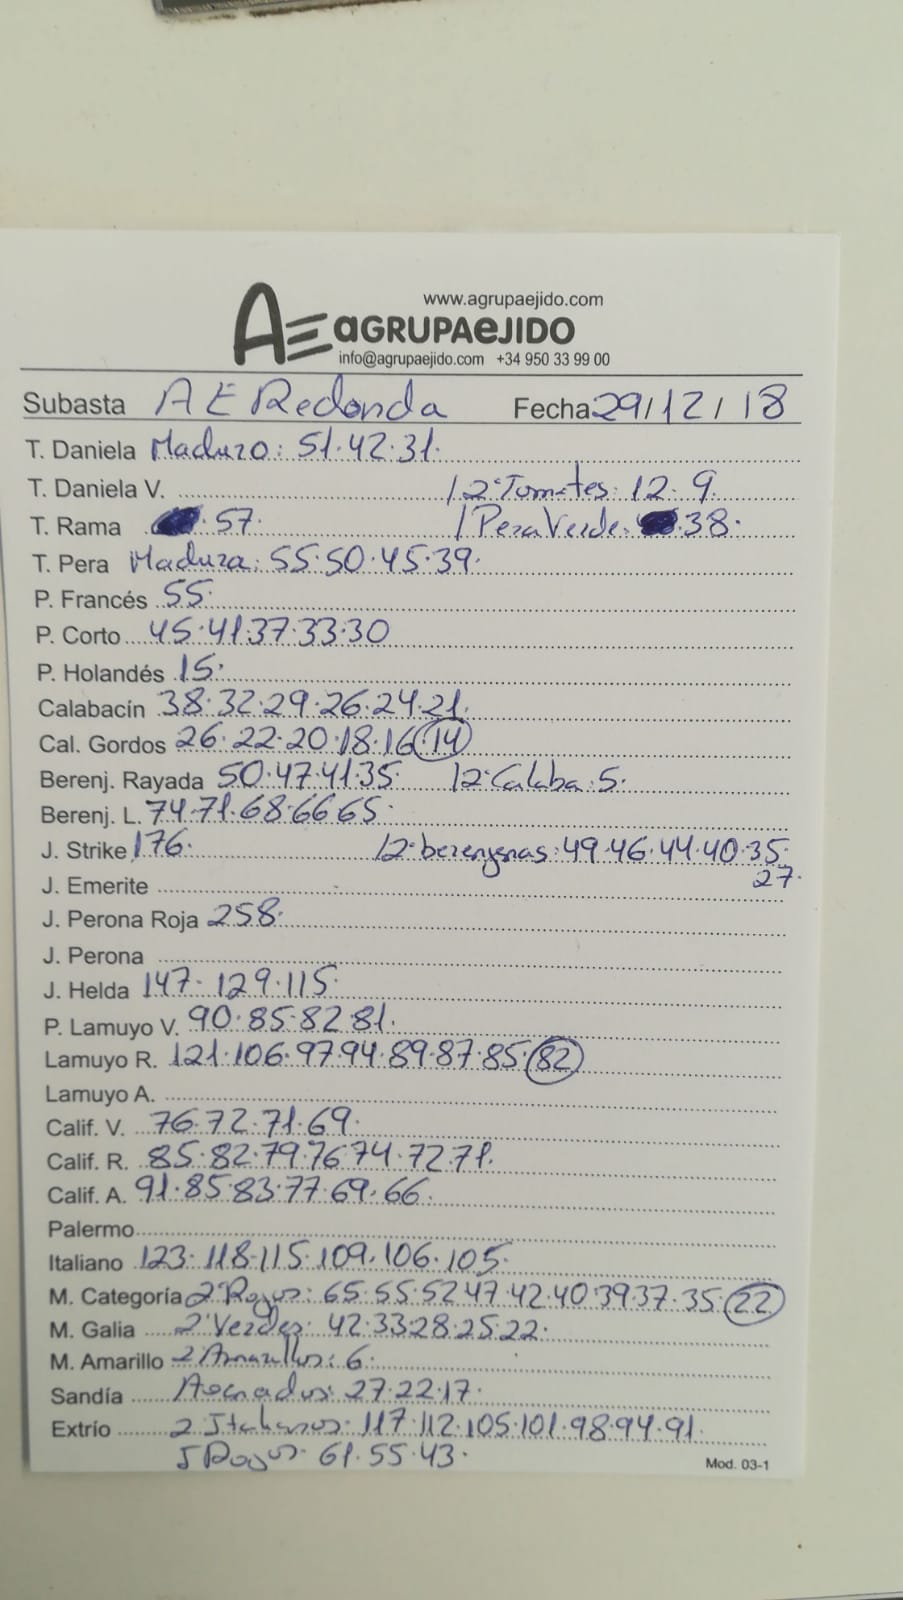 www.agrupaejido.com
AE aGRUPAeJIDO
info@agrupaejido.com +34 950 33 99 00
Subasta A E Redonda Fecha 29/12/18
T. Daniela Maduro: 51.42.31.
T. Daniela V. / 2ª Tomates: 12.9.
T. Rama .57. / Pera Verde: .38.
T. Pera Madura: 55.50.45.39.
P. Francés 55.
P. Corto 45.41.37.33.30
P. Holandés 15.
Calabacín 38.32.29.26.24.21.
Cal. Gordos 26.22.20.18.16.14
Berenj. Rayada 50.47.41.35. 12.Calaba:5.
Berenj. L. 74.71.68.66.65.
J. Strike 176. 12.berenjenas:49.46.44.40.35.
27.
J. Emerite
J. Perona Roja 258.
J. Perona
J. Helda 147.129.115.
P. Lamuyo V. 90.85.82.81.
Lamuyo R. 121.106.97.94.89.87.85.82
Lamuyo A.
Calif. V. 76.72.71.69.
Calif. R. 85.82.79.76.74.72.71.
Calif. A. 91.85.83.77.69.66.
Palermo
Italiano 123.118.115.109.106.105.
M. Categoría 2ª Rojos: 65.55.52.47.42.40.39.37.35.22
M. Galia 2ª Verdes: 42.33.28.25.22.
M. Amarillo 2 Amarillos: 6.
Sandía Asonados: 27.22.17.
Extrío 2 Italianos: 117.112.105.101.98.94.91.
Rojos: 61.55.43.
Mod. 03-1